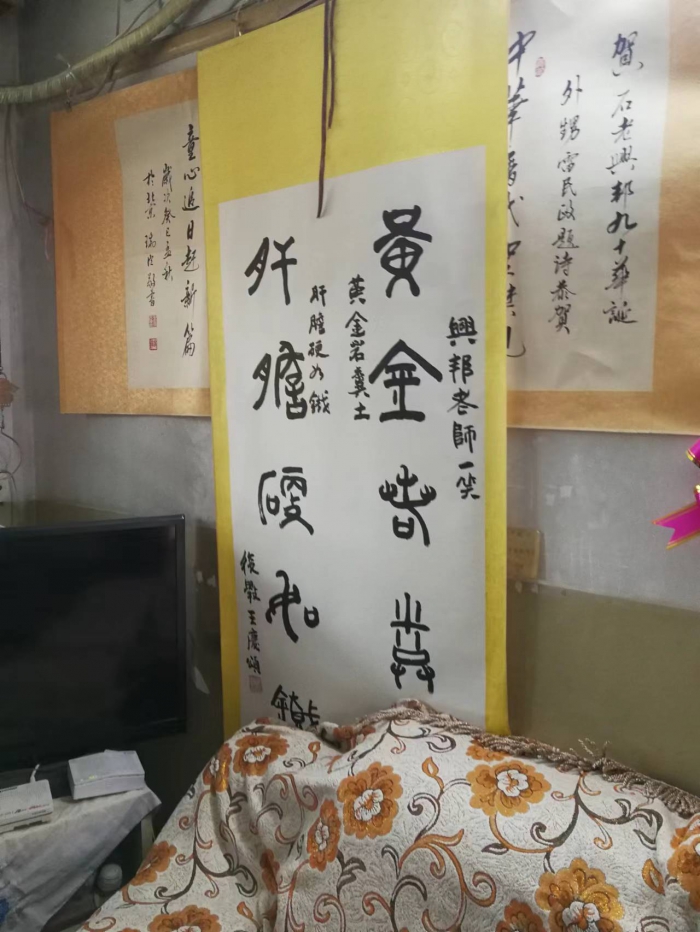 賀石老興邦九十華誕
外甥雷民政題詩恭賀
中華
興邦老師一笑
黃金若糞
黄金若糞土
肝膽硬如鐵
肝膽硬如鐵
後學王慶
童心追日起新篇
歲次癸巳孟秋
於北京